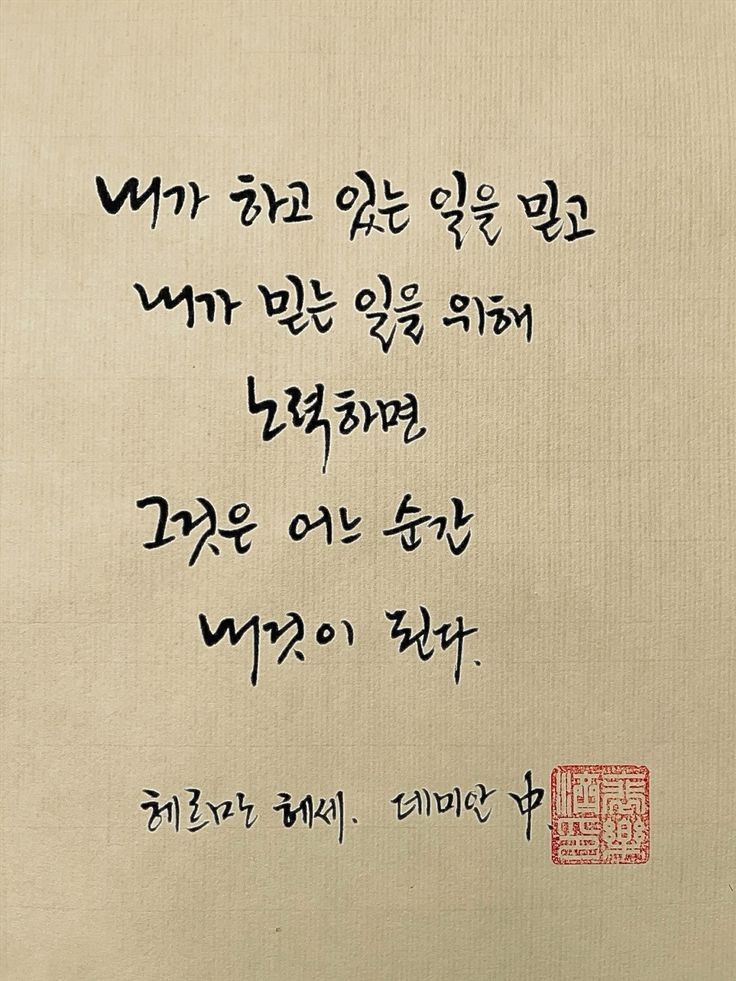 내가 하고 있는 일을 믿고
내가 믿는 일을 위해
노력하면
그것은 어느 순간
내것이 된다.
헤르만 헤세. 데미안 中.